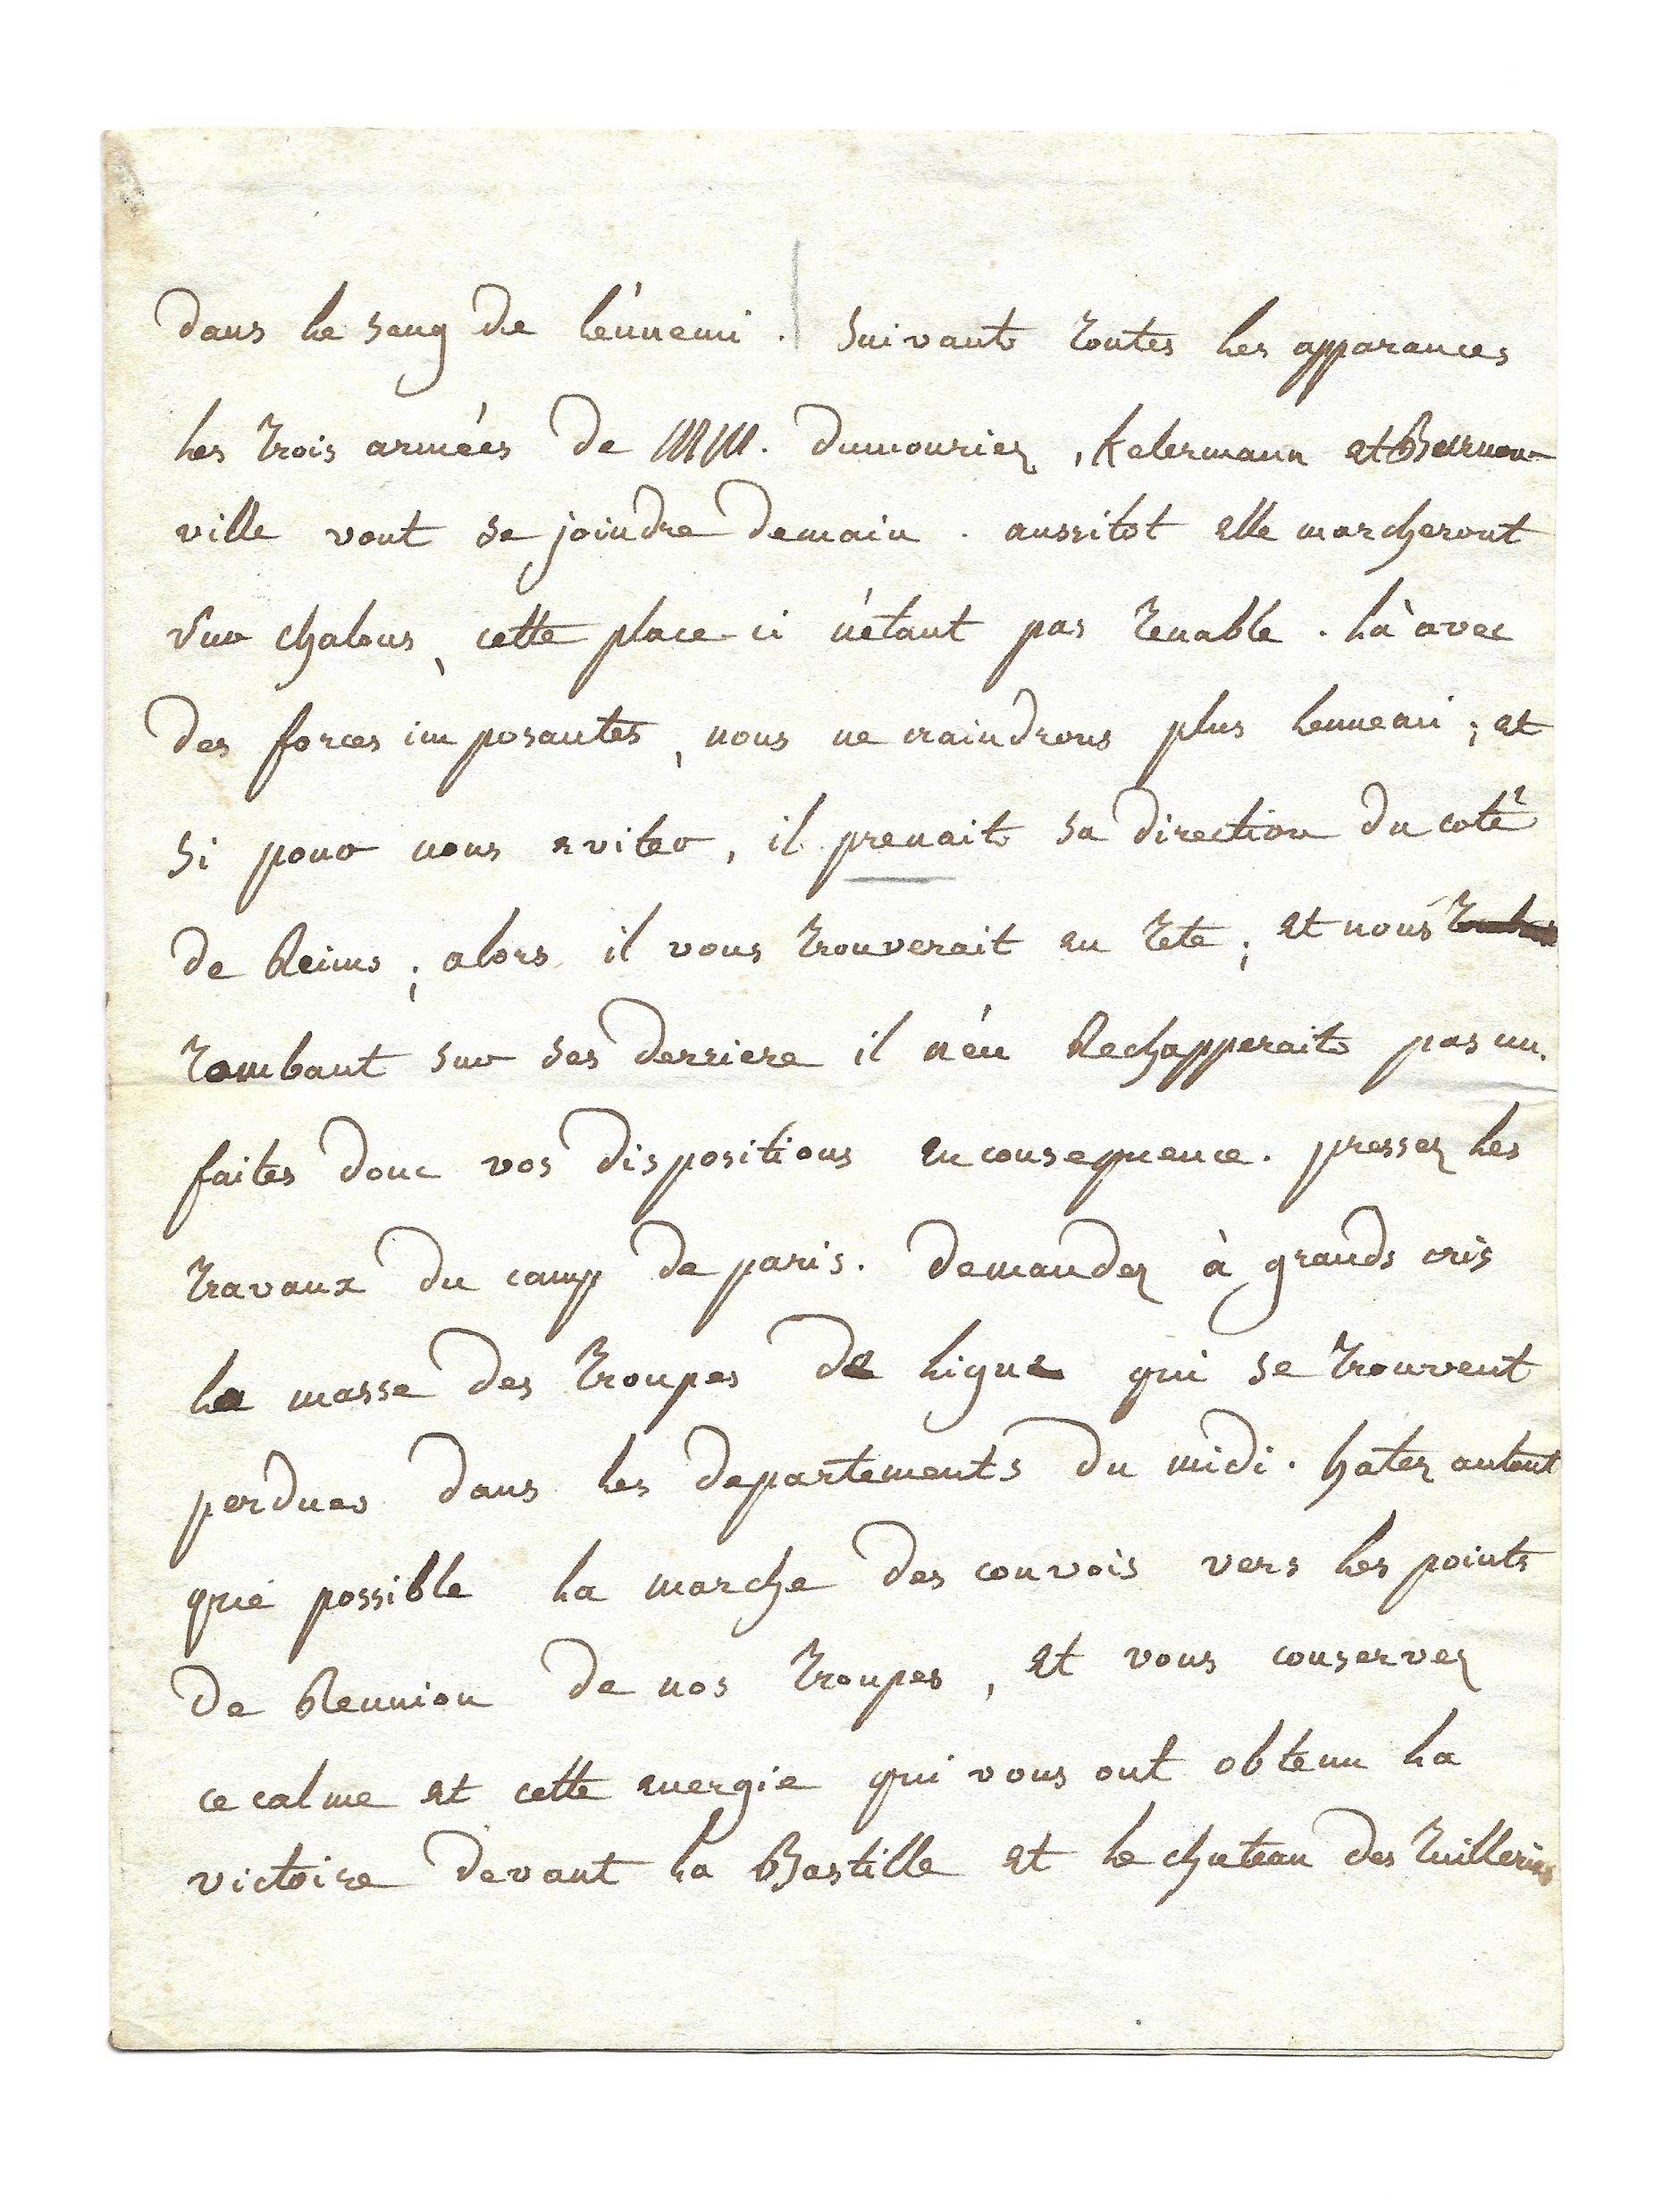 dans le sang de lénnemi. Suivant toutes les apparances
les trois armées de MM. dumouriez, Kelermann et Beurnon-
ville vont se joindre demain. aussitot elle marcheront
sur chalons, cette place-ci n'étant pas tenable. là avec
des forces imposantes, nous ne craindrons plus lennemi; et
si pour nous eviter, il prenait sa direction du coté
de Reims; alors il vous trouverait en tete; et nous
tombant sur ses derriere il n'én Rechapperait pas un.
faites donc vos dispositions en consequence. pressez les
travaux du camp de paris. demandez à grands cris
la masse des troupes de ligne qui se trouvent
perdues dans les departements du midi. hatez autant
que possible la marche des convois vers les points
de Reunion de nos troupes, et vous conservez
ce calme et cette energie qui vous ont obtenu la
victoire devant la Bastille et le chateau des tuilleries